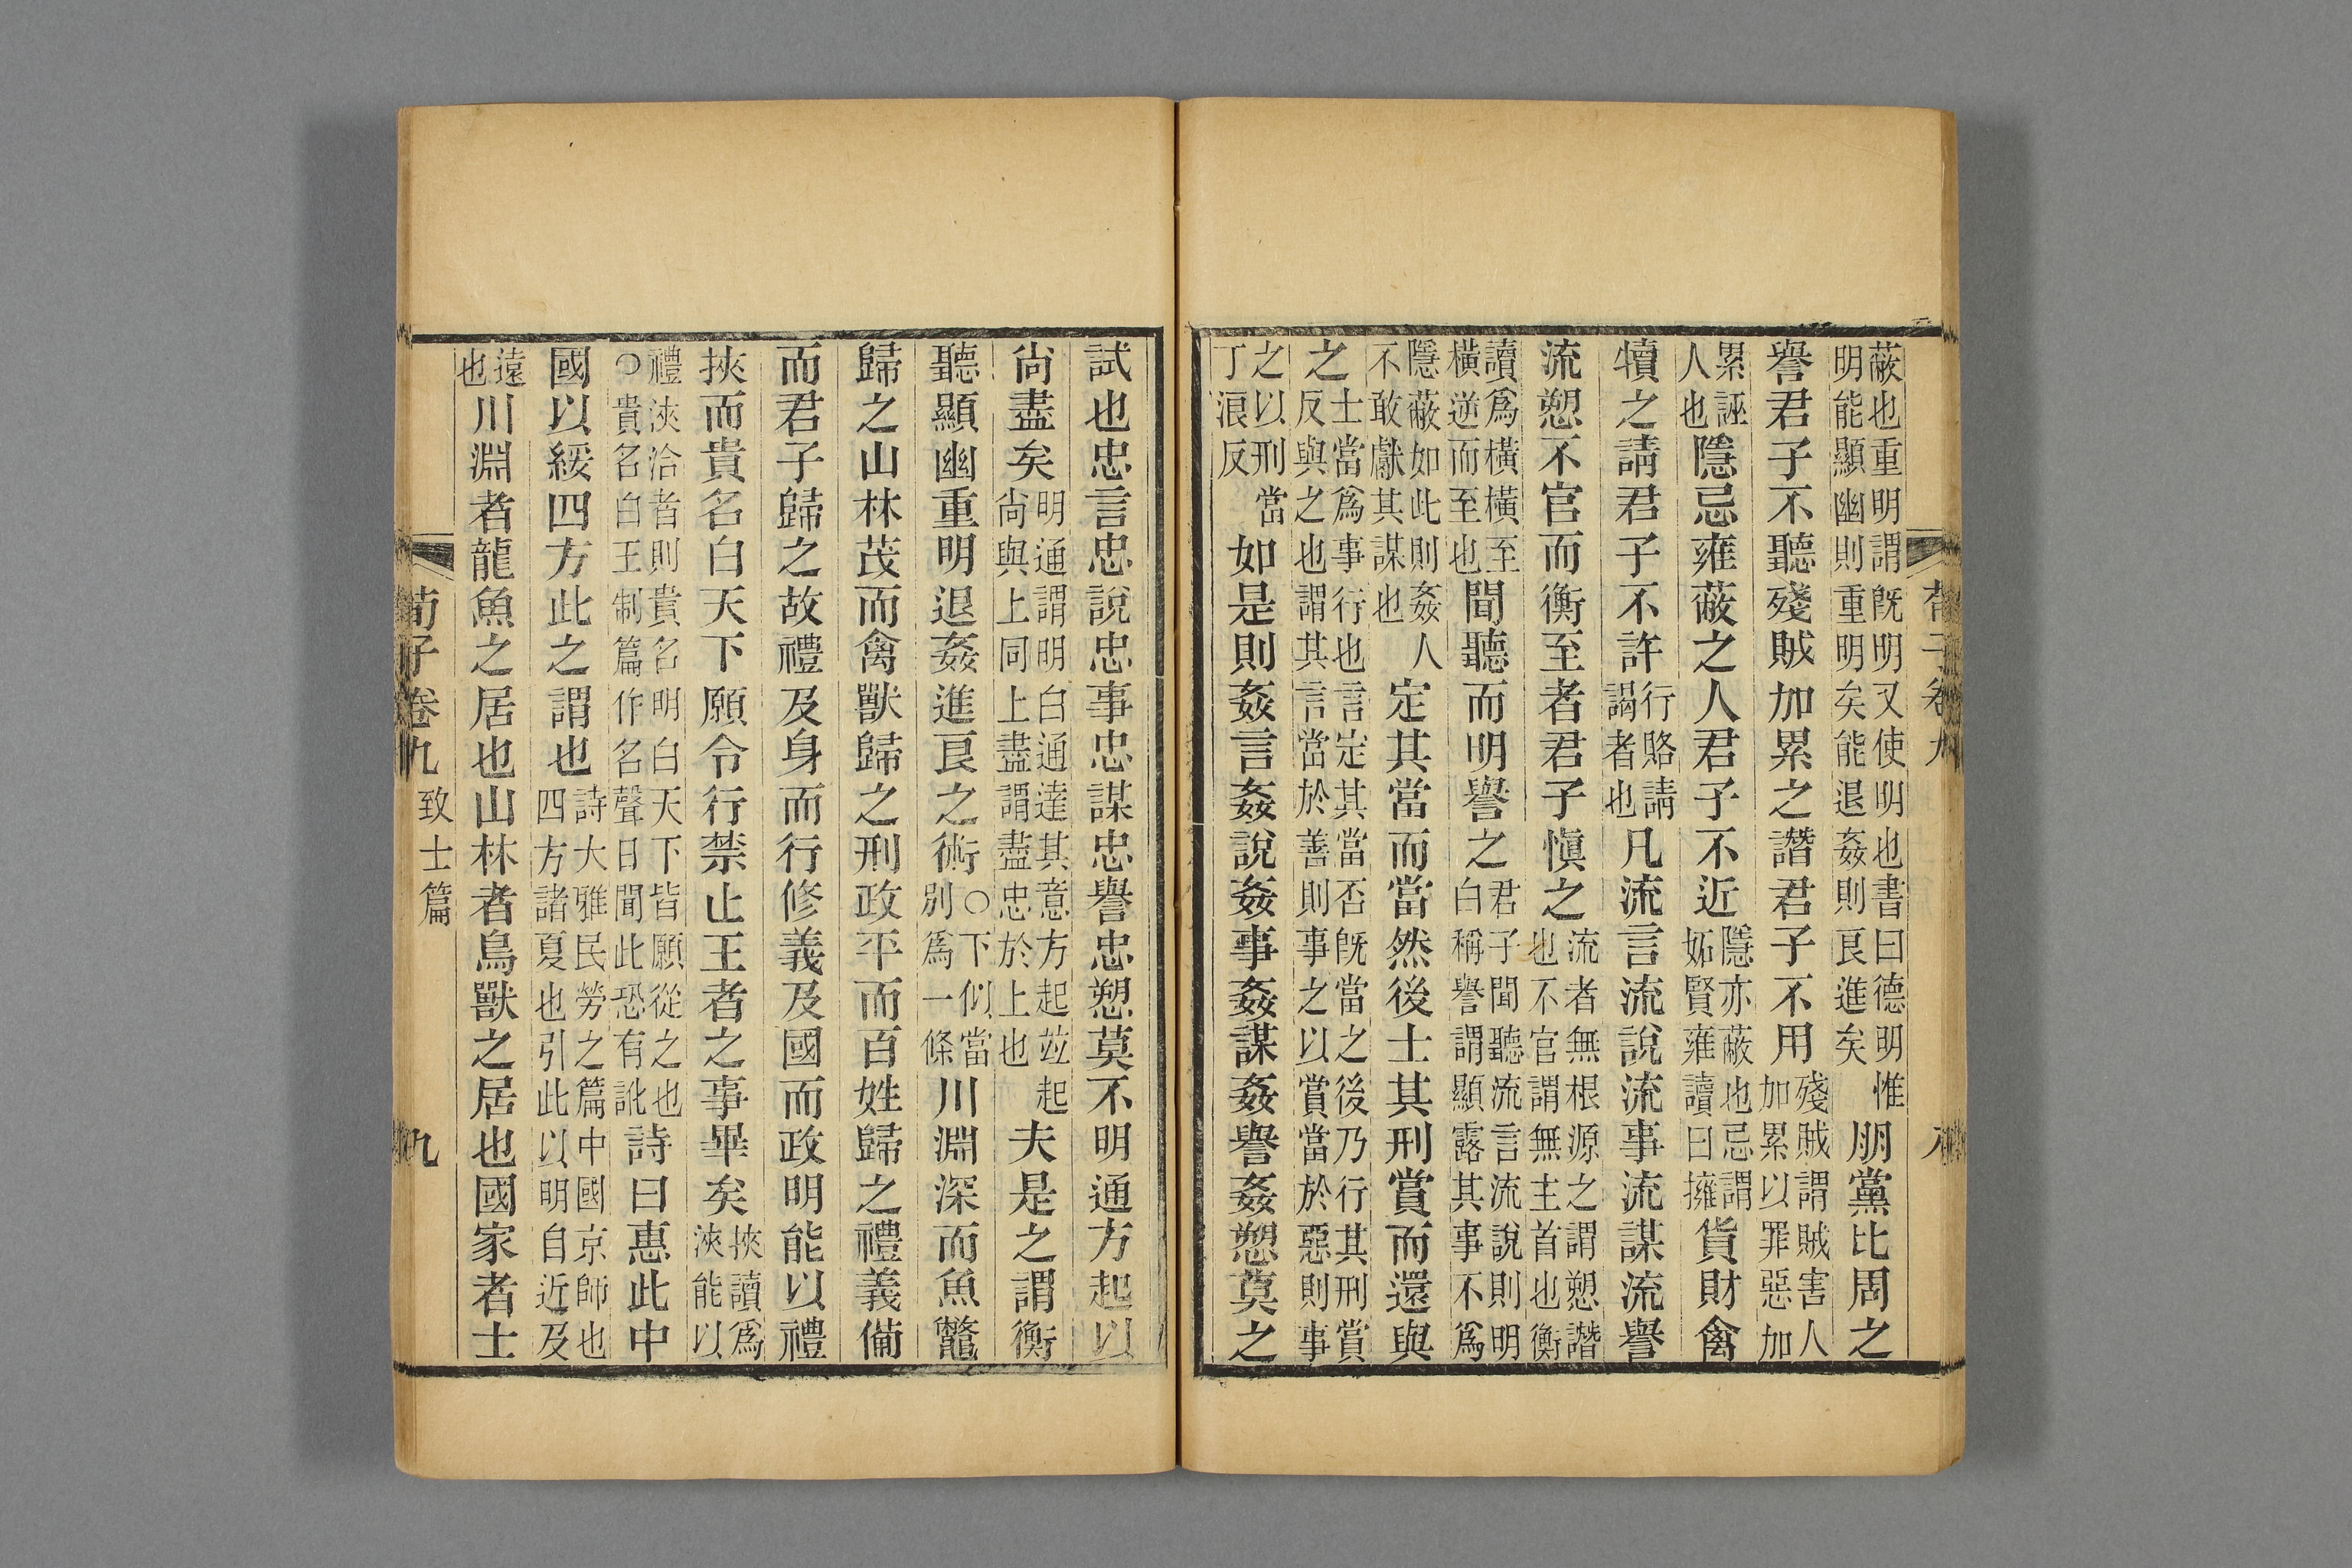 荀子卷九
蔽也重明謂既明又使明也書曰德明惟明能顯幽則重明矣能退姦則良進矣朋黨比周之
譽君子不聽殘賊加累之譖君子不用殘賊謂賊害人加累以罪惡加
累誣人也隱忌雍蔽之人君子不近隱亦蔽也忌謂妬賢雍讀曰擁貨財禽
犢之請君子不許行賂請謁者也凡流言流說流事流謀流譽
流愬不官而衡至者君子慎之流者無根源之謂愬譖也不官謂無主首也衡
讀爲橫橫至橫逆而至也聞聽而明譽之君子聞聽流言流說則明白稱譽謂顯露其事不爲
隱蔽如此則姦人不敢獻其謀也定其當而當然後士其刑賞而還與
之士當爲事行也言定其當否既當之後乃行其刑賞反與之也謂其言當於善則事之以賞當於惡則事
之以刑當丁浪反如是則姦言姦說姦事姦謀姦譽姦愬莫之
試也忠言忠說忠事忠謀忠譽忠愬莫不明通方起以
尙盡矣明通謂明白通達其意方起竝起尙與上同上盡謂盡忠於上也夫是之謂衡
聽顯幽重明退姦進良之術○下似當別爲一條川淵深而魚鼈
歸之山林茂而禽獸歸之刑政平而百姓歸之禮義備
而君子歸之故禮及身而行修義及國而政明能以禮
挾而貴名白天下願令行禁止王者之事畢矣挾讀爲浹能以
禮浹洽者則貴名明白天下皆願從之也○貴名白王制篇作名聲日聞此恐有訛詩曰惠此中
國以綏四方此之謂也詩大雅民勞之篇中國京師也四方諸夏也引此以明自近及
遠也川淵者龍魚之居也山林者鳥獸之居也國家者士
荀子卷九 致士篇 九